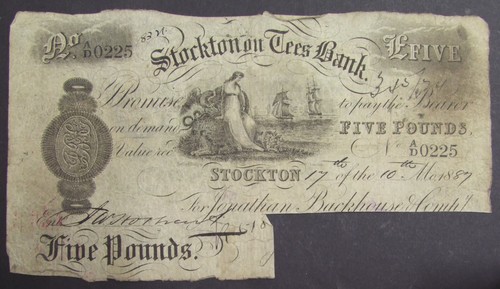 No A/D 0225
Stockton on Tees Bank.
£FIVE
Promise to pay the Bearer
on demand FIVE POUNDS.
Value recd A/D 0225
STOCKTON 17th of the 10th Mo. 1887
For Jonathan Backhouse & Compy
Entd
Five Pounds.